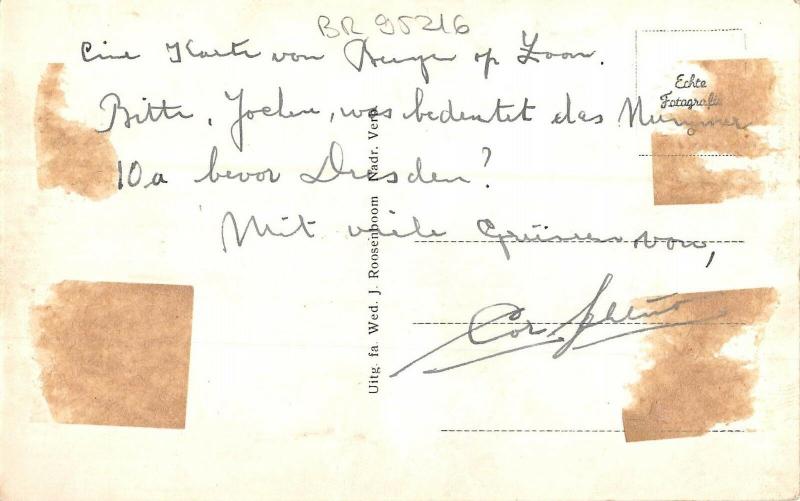 BR 95216
Eine Karte von Bergen op Zoom.
Bitte, Jochen, was bedeutet das Nummer
10a bevor Dresden?
Mit viele Grüssen von,
Cor
Echte
Fotografie
Uitg. fa. Wed. J. Roosenboom Nadr. Verb.